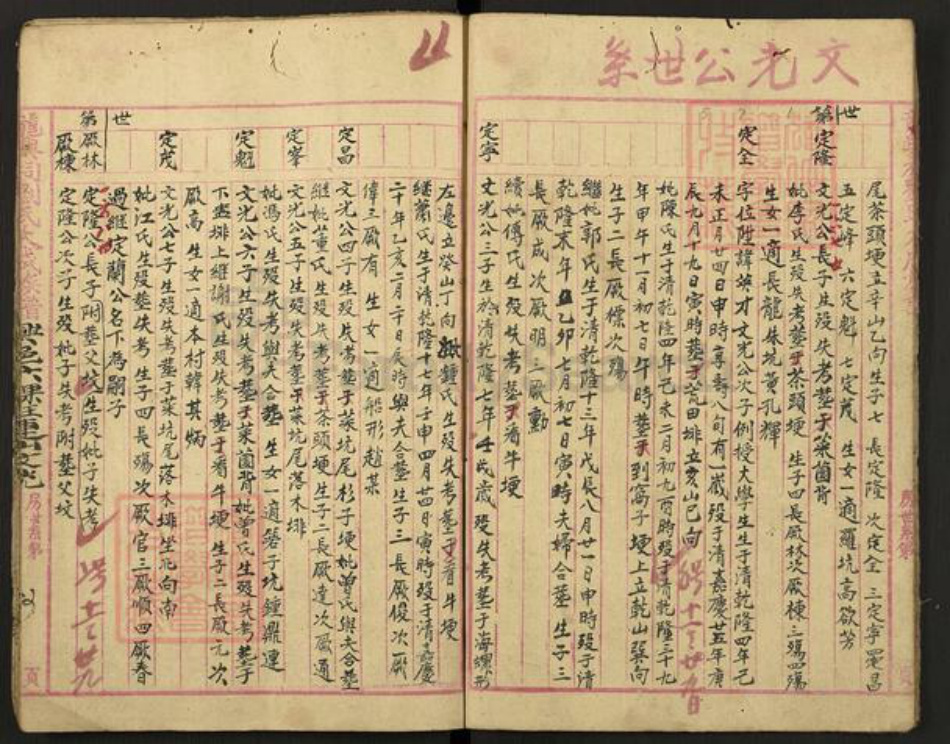 文光公世系
世
第
定隆
尾茶頭埂立辛山乙向生子七 長定隆 次定全 三定寧 四定昌
五定峰 六定魁 七定茂 生女一適羅坑高欲芳
文光公長子生歿失考塟于菜箇背
妣李氏生歿失考塟于茶頭埂 生子四長厥林次厥棟三殤四殤
生女一適長龍妹坑黃孔輝
定全
字位陞諱英才文光公次子例授大學生生于清乾隆四年己
未正月廿四日申時享壽八旬有一嵗歿于清嘉慶廿五年庚
辰九月十九日寅時塟于荒田排立亥山巳向
妣陳氏生于清乾隆四年己未二月初九丙時歿于清乾隆三十九
年甲午十一月初七日午時塟于到窩子埂上立乾山巽向
生子二長厥標次殤
繼妣郭氏生于清乾隆十三年戊辰八月廿一日申時歿于清
乾隆末年乙卯七月初七日寅時夫婦合塟 生子三
長厥成次厥明三厥勳
續妣傅氏生歿失考塟于看牛埂
定寧
文光公三子生於清乾隆七年壬戌歲 歿失考塟于海螺形
左邊立癸山丁向 鍾氏生歿失考塟于看牛埂
繼蕭氏生于清乾隆十七年壬申四月廿四日寅時歿于清嘉慶
二十年乙亥二月二十日辰時與夫合塟生子三長厥俊次厥
偉三厥有 生女一適船形趙某
定昌
文光公四子生歿失考塟于菜坑尾杉子埂妣曾氏與夫合塟
繼妣黃氏生歿失考塟于茶頭埂生子二長厥達次厥通
定峯
文光公五子生歿失考塟于菜坑尾落木排
妣馮氏生歿失考與夫合塟 生女一適磜子坑鍾鼎連
定魁
文光公六子生歿失考塟于菜箇背妣曾氏生歿失考塟于
下盡排上繼謝氏生歿失考塟于看牛埂 生子二長厥元次
厥高 生女一適本村韓其炳
定茂
文光公七子生歿失考塟于菜坑尾落木排坐北向南
妣江氏生歿塟失考 生子四長殤次厥官三厥順四厥春
過繼定蘭公名下為嗣子
世
第
厥林
定隆公長子附塟父坟生歿妣子失考
厥棟
定隆公次子生歿妣子失考附塟父坟
房世系第
頁